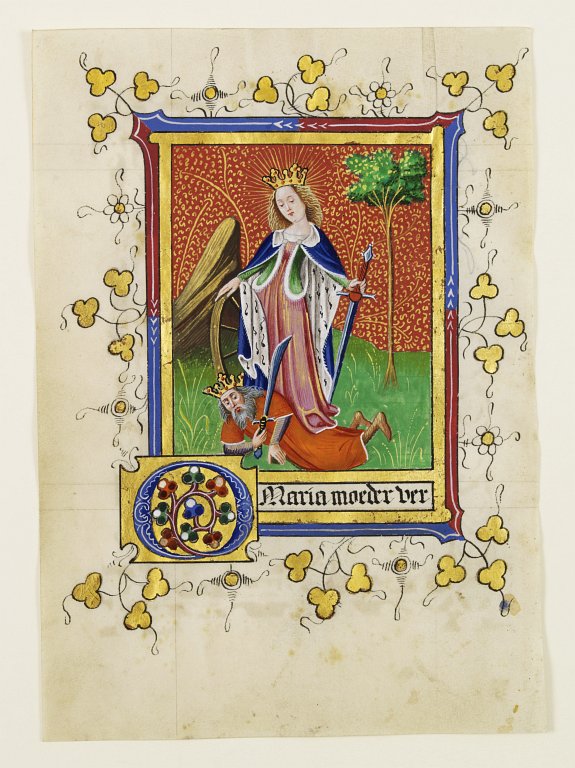 O Maria moeder ver